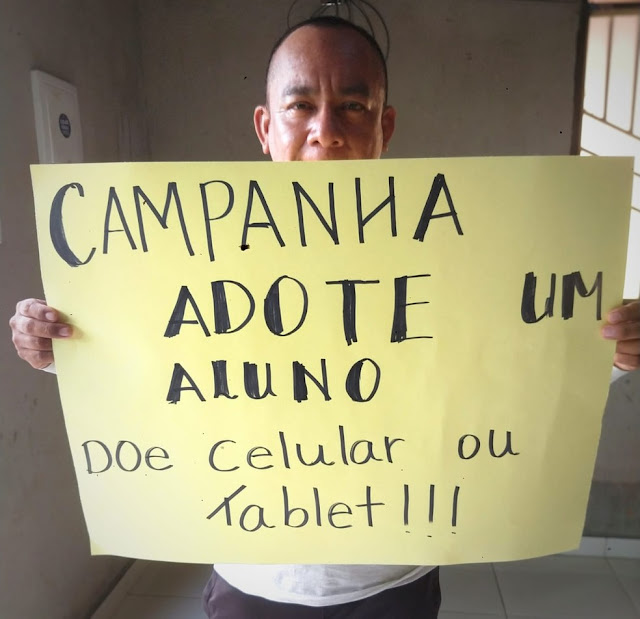 CAMPANHA
ADOTE UM
ALUNO
DOe celular ou
Tablet!!!